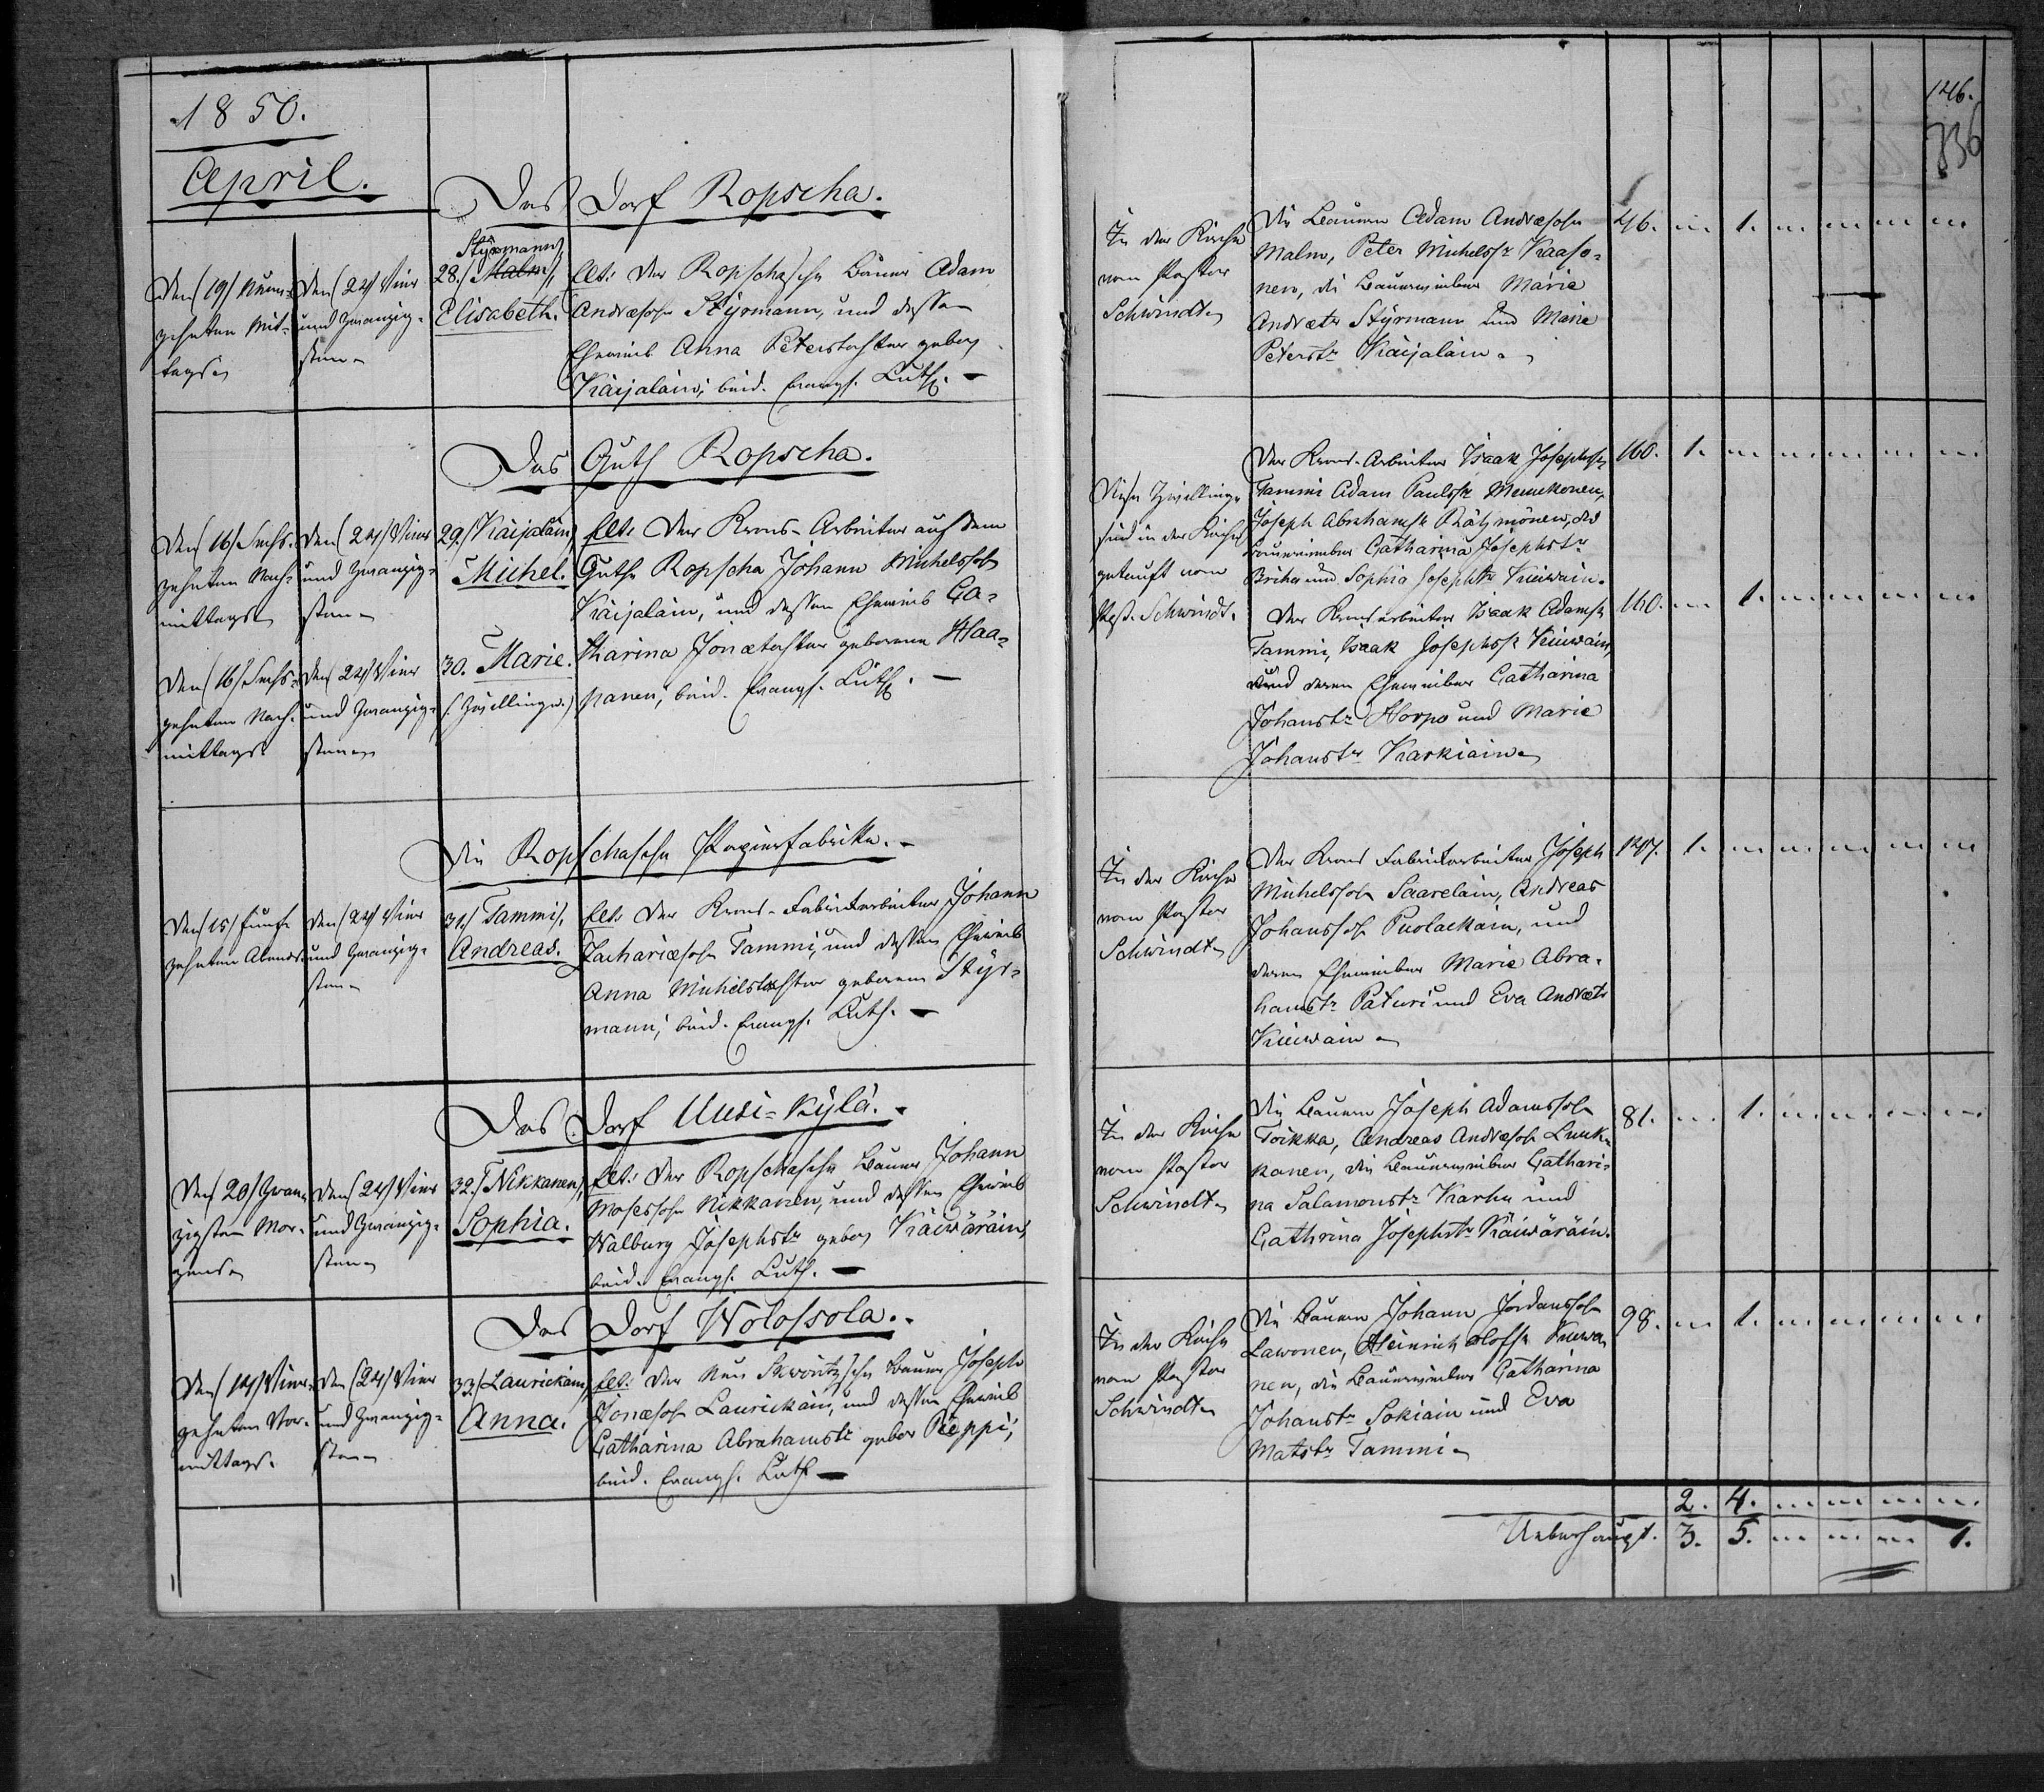 1850.
April.
Das Dorf Ropscha.
Den (19) Neun=
zehnten Mit=
tags.
Den (24) Vier
und Zwanzig=
sten.
Styrmann,
28./ Malm/,
Elisabeth.
Elt: Der Ropschasche Bauer Adam
Andreæsohn Styrmann, und dessen
Eheweib Anna Peterstochter gebor.
Käijäläin; beid. Evangl. Luth.
Das Guth Ropscha.
Den (16) Sechs=
zehnten Nach=
mittags.
Den (24) Vier
und Zwanzig=
sten.
29./ Käijäläin,
Michel.
Elt: Der Krons-Arbeiter auf dem
Guthe Ropscha Johann Michelssohn
Käijäläin, und dessen Eheweib Ca=
tharina Jonætochter geborene Haa=
panen; beid. Evangl. Luth.
Den (16) Sechs=
zehnten Nach=
mittags.
Den (24) Vier
und Zwanzig=
sten.
30. Marie.
(: Zwillinge.)
Die Ropschasche Papierfabrike.
Den (15) Fünf=
zehnten Abends.
Den (24) Vier
und Zwanzig=
sten.
31./ Tammi/,
Andreas.
Elt: Der Krons-Fabrikarbeiter Johann
Zachariæsohn Tammi, und dessen Eheweib
Anna Michelstochter geborene Styr=
mann; beid. Evangl. Luth.
Das Dorf Uusi=Kylä.
Den (20) Zwan=
zigsten Mor=
gens.
Den (24) Vier
und Zwanzig=
sten.
32./ Nikkanen,
Sophia.
Elt: Der Ropschasche Bauer Johann
Mosessohn Nikkanen, und dessen Eheweib
Walburg Josephstr gebor. Käiwäräin;
beid. Evangl. Luth.
Das Dorf Wolossola.
Den (14) Vier=
zehnten Vor=
mittags.
Den (24) Vier
und Zwanzig=
sten.
33./ Laurickain,
Anna.
Elt: Der Neu Skworitzsche Bauer Joseph
Jonæsohn Laurickain, und dessen Eheweib
Catharina Abrahamstr gebor. Pieppi;
beid. Evangl. Luth.
146.
736
In der Kirche
vom Pastor
Schwindt.
Die Bauern Adam Andreæsohn
Malm, Peter Michelss: Kaaso=
nen, die Bauerweiber Marie
Andreætr Styrmann und Marie
Peterstr Käijäläin.
46. 1.
Diese Zwillinge
sind in der Kirche
getauft vom
Past. Schwindt.
Der Krons-Arbeiter Isaak Josephss:
Tammi Adam Paulss:
Joseph Abrahamss: Rähmönen, die
Bauerweiber Catharina Josephstr
und Sophia Josephstr Kiiwäin.
160. 1.
Der Kronsarbeiter Isaak Adamss:
Tammi, Isaak Josephss: Kiiwäin,
und deren Eheweiber Catharina
Johanstr Horpo und Marie
Johanstr Karkiain.
160. 1.
In der Kirche
vom Pastor
Schwindt.
Der Krons Fabrikarbeiter Joseph
Michelssohn Saarelain, Andreas
Johanssohn Puolackain, und
deren Eheweiber Marie Abra=
hamstr Paturi und Eva Andreætr
Kiiwäin.
127. 1.
In der Kirche
vom Pastor
Schwindt.
Die Bauern Joseph Adamssohn
Toikka, Andreas Andreæsohn Luuk=
kanen, die Bauerweiber Cathari=
na Salamonstr Karhu und
Cathrina Josephstr Käiwäräin.
81. 1.
In der Kirche
vom Pastor
Schwindt.
Die Bauern Johann Jordanssohn
Lawonen, Heinrich Olofss: Kuwa
nen, die Bauerweiber Catharina
Johanstr Sokiain und Eva
Matstr Tammi.
98. 1.
2. 4.
Ueberhaupt. 3. 5. 1.